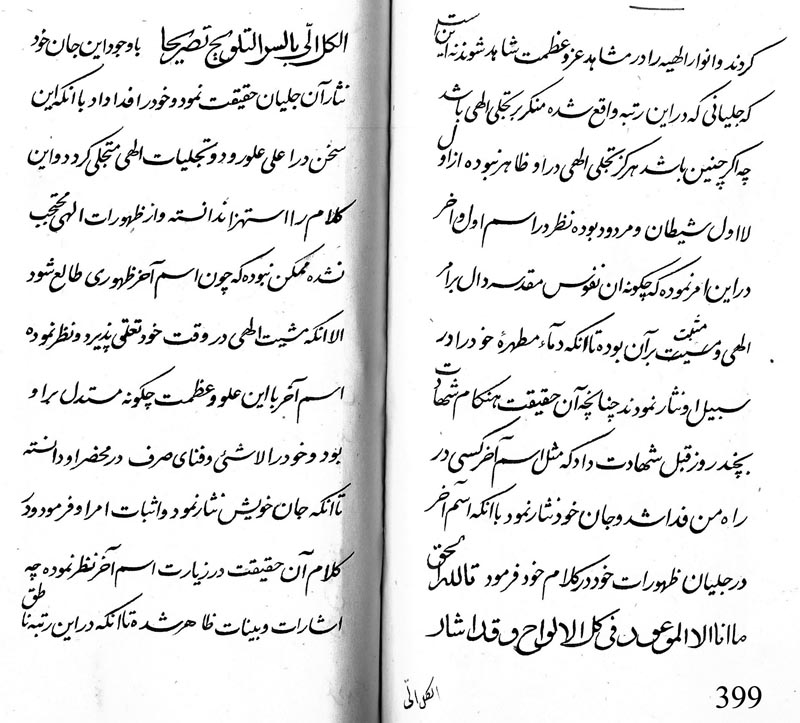 کردند و انوار الهیه را در مشاهد عز و عظمت شاهد شوند نه این است
که جلیانی که در این رتبه واقع شده منکر بر تجلی الهی باشد
چه اکر چنین باشد هرکز تجلی الهی در او ظاهر نبوده از اول
لا اول شیطان و مردود بوده نظر در اسم اول و اخر
در این امر نموده که چکونه ان نفوس مقدسه دال بر امر
الهی و مشیت مثبت بر آن بوده تا انکه دمآء مطهرهٔ خود را در
سبیل او نثار نمودند چنانچه آن حقیقت هنکام شهادت
بچند روز قبل شهادت داد که مثل اسم آخر کسی در
راه من فدا شد و جان خود نثار نمود با انکه اسم آخر
در جلیان ظهورات خود در کلام خود فرمود قاللله الحق
ما انا الا الموعود فی کل الالواح و قد اشار
الکل الّی
399
الکل الّی بالسر التلویح تصریحا باوجود این جان خود
نثار آن جلیان حقیقت نمود و خود را فدا داد با انکه این
سخن در اعلی علو رود و تجلیات الهی متجلی کردد و این
کلام را استهزا ندانسته و از ظهورات الهی محتجب
نشده ممکن نبوده که چون اسم آخر ظهوری طالع شود
الا انکه مشیت الهی در وقت خود تعلق پذیرد و نظر نموده
اسم آخر با این علو و عظمت چکونه مستدل بر او
بود و خود را لاشئی و فنای صرف در محضر او دانسته
تا انکه جان خویش نثار نمود و اثبات امر او فرمود و در
کلام آن حقیقت در زیارت اسم آخر نظر نموده چه
اشارات و بینات ظاهر شده تا انکه در این رتبه ناطق